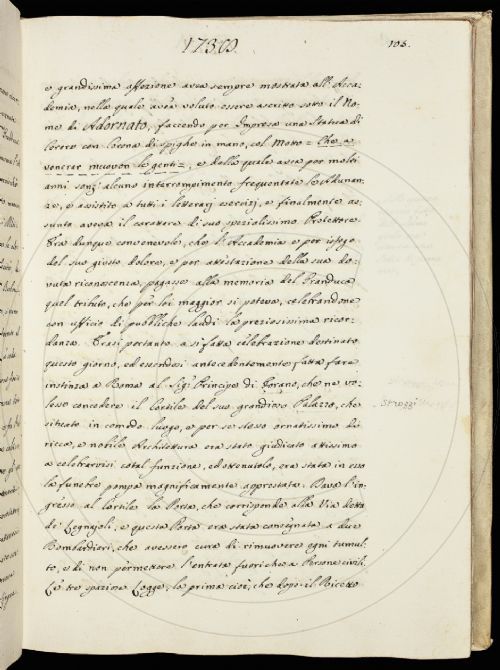 1738.
105.
e grandissima affezione avea sempre mostrata all' Acca-
demia, nella quale avea voluto essere ascritto sotto il No-
me di Adornato, facendo per Impresa una Statua di
Cerere con Corona di spighe in mano, col Motto = Che a
venerar muovon le genti =, e della quale avea per molti
anni senz' alcuno interrompimento frequentate le Adunan-
ze, e assistito a tutti i letterarj esercizj, e finalmente as-
sunto aveva il carattere di suo spezialissimo Protettore
Era dunque convenevole, che l'Accademia e per isfogo
del suo giusto dolore, e per attestazione della sua do-
vuta riconoscenza, pagasse alla memoria del Granduca
quel tributo, che per lei maggior si poteva, celebrandone
con ufficio di pubbliche laudi la preziosissima ricor-
danza. Erasi pertanto a sì fatta celebrazione destinato
questo giorno, ed essendosi antecedentemente fatta fare
instanza a Roma al Sig.r Principe di Forano, che ne vo-
lesse concedere il Cortile del suo grandioso Palazzo, che
Strozzi
situato in comodo luogo, e per se stesso ornatissimo di
ricca, e nobile Architettura era stato giudicato attissimo
a celebrarvisi cotal funzione, ed ottenutolo, era stata in esso
la funebre pompa magnificamente apprestata. Dava l'in-
gresso al Cortile la Porta, che corrisponde alla Via detta
de' Legnajoli, e questa Porta era stata consegnata a due
Bombardieri, che avessero cura di rimuovere ogni tumul-
to, e di non permettere l'entrata fuorichè a Persone civili.
Le tre spaziose Logge, la prima cioè, che dopo il Ricetto